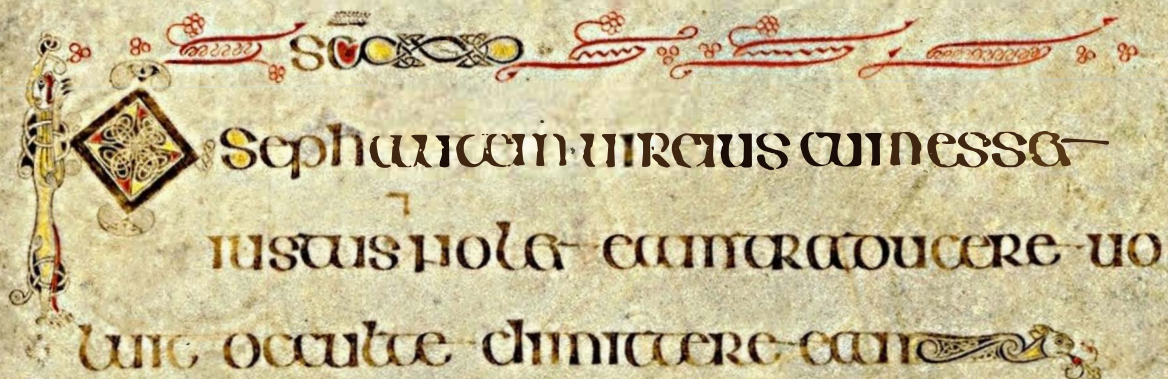 sco
Ioseph autem uir eius cum esset
iustus nolet eam traducere uo
luit occulte dimittere eam